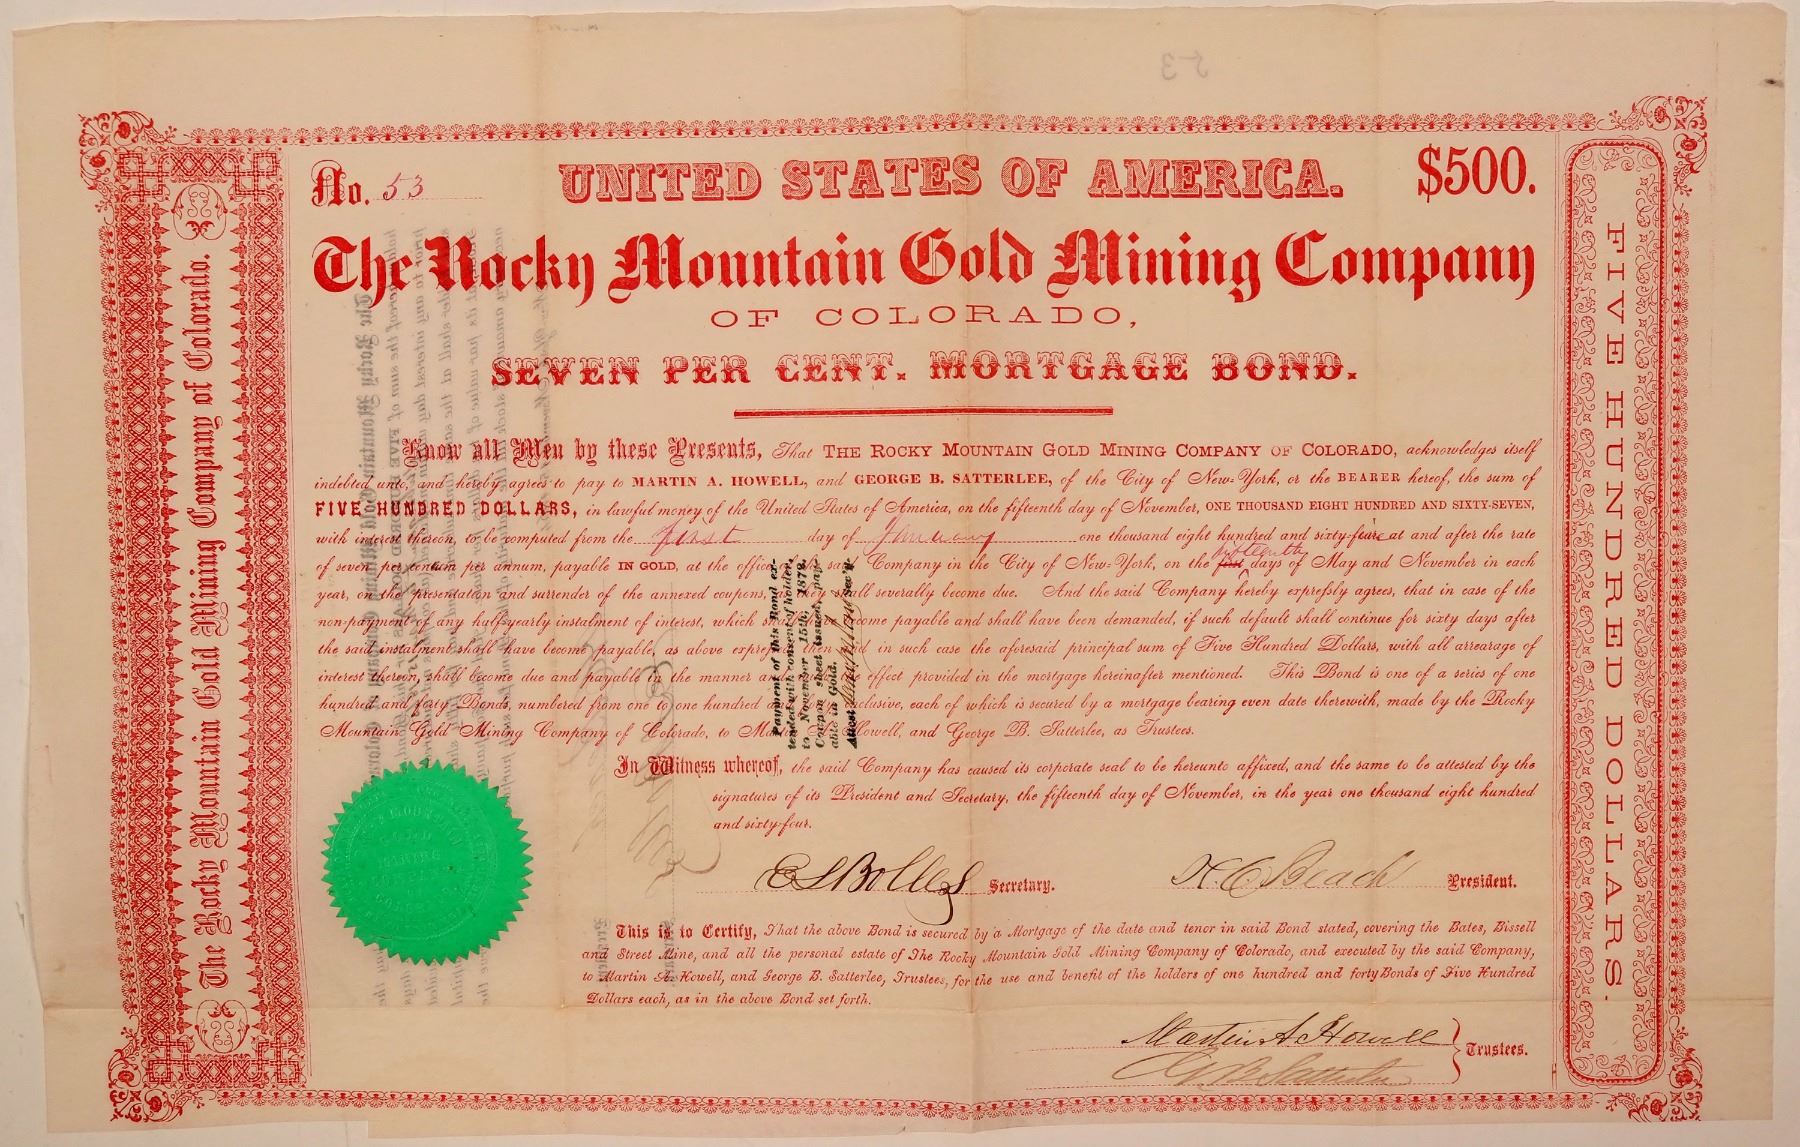 No. 53
UNITED STATES OF AMERICA.
$500.
The Rocky Mountain Gold Mining Company
OF COLORADO,
SEVEN PER CENT. MORTGAGE BOND.
Know all Men by these Presents, That THE ROCKY MOUNTAIN GOLD MINING COMPANY OF COLORADO, acknowledges itself
indebted unto, and hereby agrees to pay to MARTIN A. HOWELL, and GEORGE B. SATTERLEE, of the City of New-York, or the BEARER hereof, the sum of
FIVE HUNDRED DOLLARS, in lawful money of the United States of America, on the fifteenth day of November, ONE THOUSAND EIGHT HUNDRED AND SIXTY-SEVEN,
with interest thereon, to be computed from the first day of January one thousand eight hundred and sixty- at and after the rate
of seven per centum per annum, payable IN GOLD, at the office of the said Company in the City of New-York, on the fifteenth days of May and November in each
year, on the presentation and surrender of the annexed coupons, they shall severally become due. And the said Company hereby expressly agrees, that in case of the
non-payment of any half-yearly instalment of interest, which shall become payable and shall have been demanded, if such default shall continue for sixty days after
the said instalment shall have become payable, as above expressed then and in such case the aforesaid principal sum of Five Hundred Dollars, with all arrearage of
interest thereon, shall become due and payable in the manner and effect provided in the mortgage hereinafter mentioned. This Bond is one of a series of one
hundred and forty Bonds, numbered from one to one hundred inclusive, each of which is secured by a mortgage bearing even date therewith, made by the Rocky
Mountain Gold Mining Company of Colorado, to Martin A. Howell, and George B. Satterlee, as Trustees.
Payment of this Bond ex-
tended with consent of holder,
to November 15th, 1872.
Coupon sheet issued pay-
able in Gold.
Attest Sec'y.
In Witness whereof, the said Company has caused its corporate seal to be hereunto affixed, and the same to be attested by the
signatures of its President and Secretary, the fifteenth day of November, in the year one thousand eight hundred
and sixty-four.
E S Bolles Secretary.
H. C. Beach President.
This is to Certify, That the above Bond is secured by a Mortgage of the date and tenor in said Bond stated, covering the Bates, Bissell
and Street Mine, and all the personal estate of The Rocky Mountain Gold Mining Company of Colorado, and executed by the said Company,
to Martin A. Howell, and George B. Satterlee, Trustees, for the use and benefit of the holders of one hundred and forty Bonds of Five Hundred
Dollars each, as in the above Bond set forth.
Martin A Howell
G B Satterlee
Trustees.
The Rocky Mountain Gold Mining Company of Colorado.
FIVE HUNDRED DOLLARS.